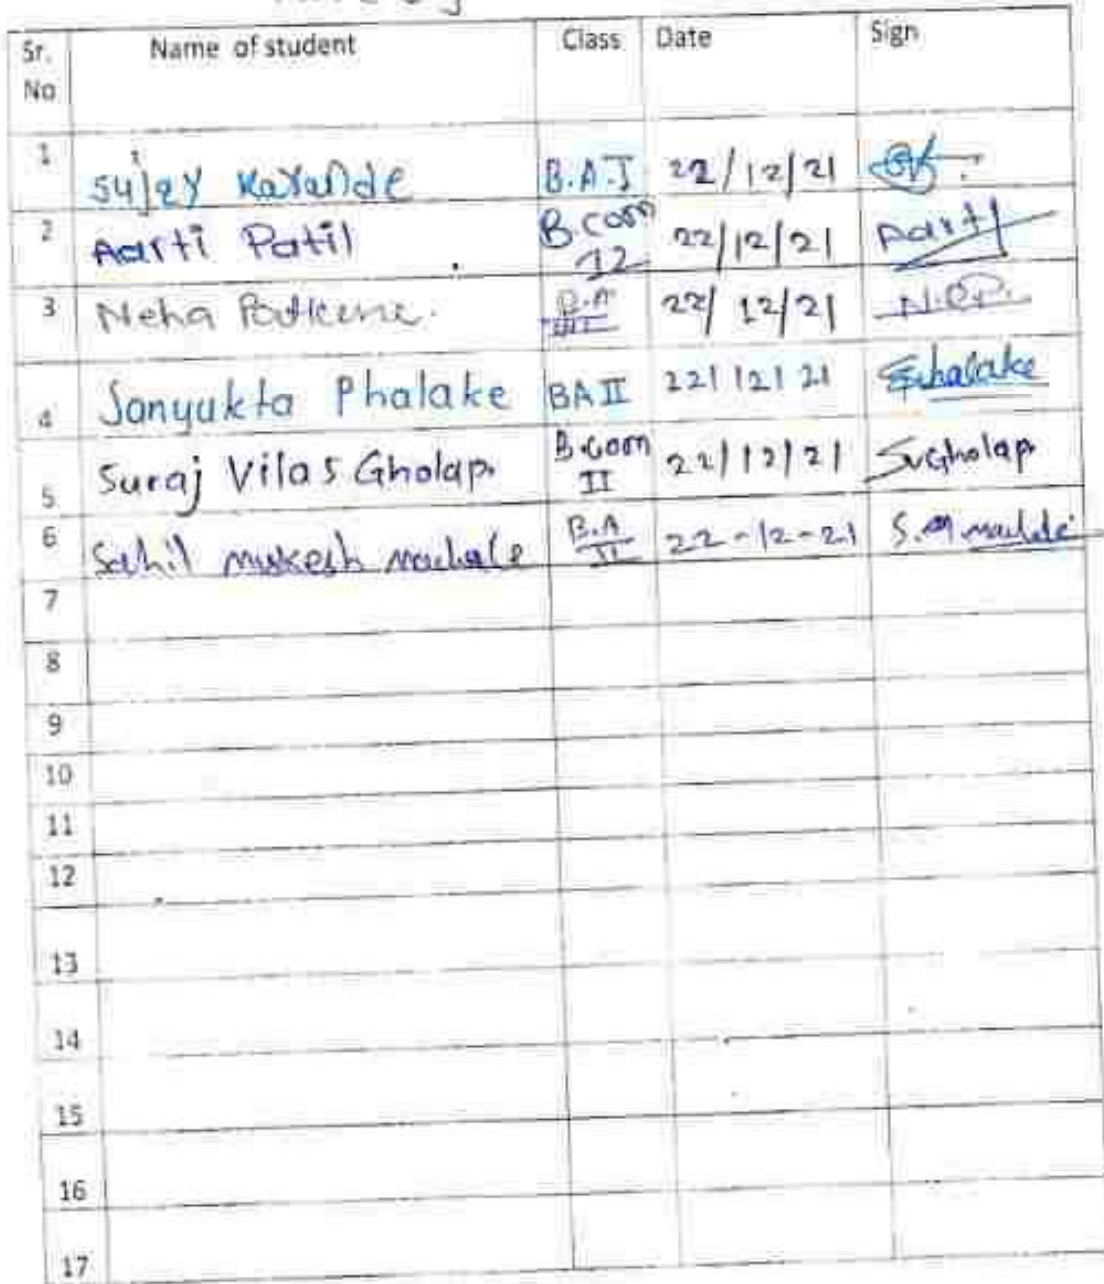 Sr. No Name of student Class Date Sign
1 sujay Karande B.A.I 22/12/21
2 Aarti Patil B.com 12 22/12/21 Aarti
3 Neha B.A III 22/12/21 N.O.P.
4 Sanyukta Phalake BA II 22/12/21 Sphalake
5 Suraj Vilas Gholap. B.com II 22/12/21 SvGholap
6 Sahil mukesh B.A II 22-12-21 S.M.
7
8
9
10
11
12
13
14
15
16
17